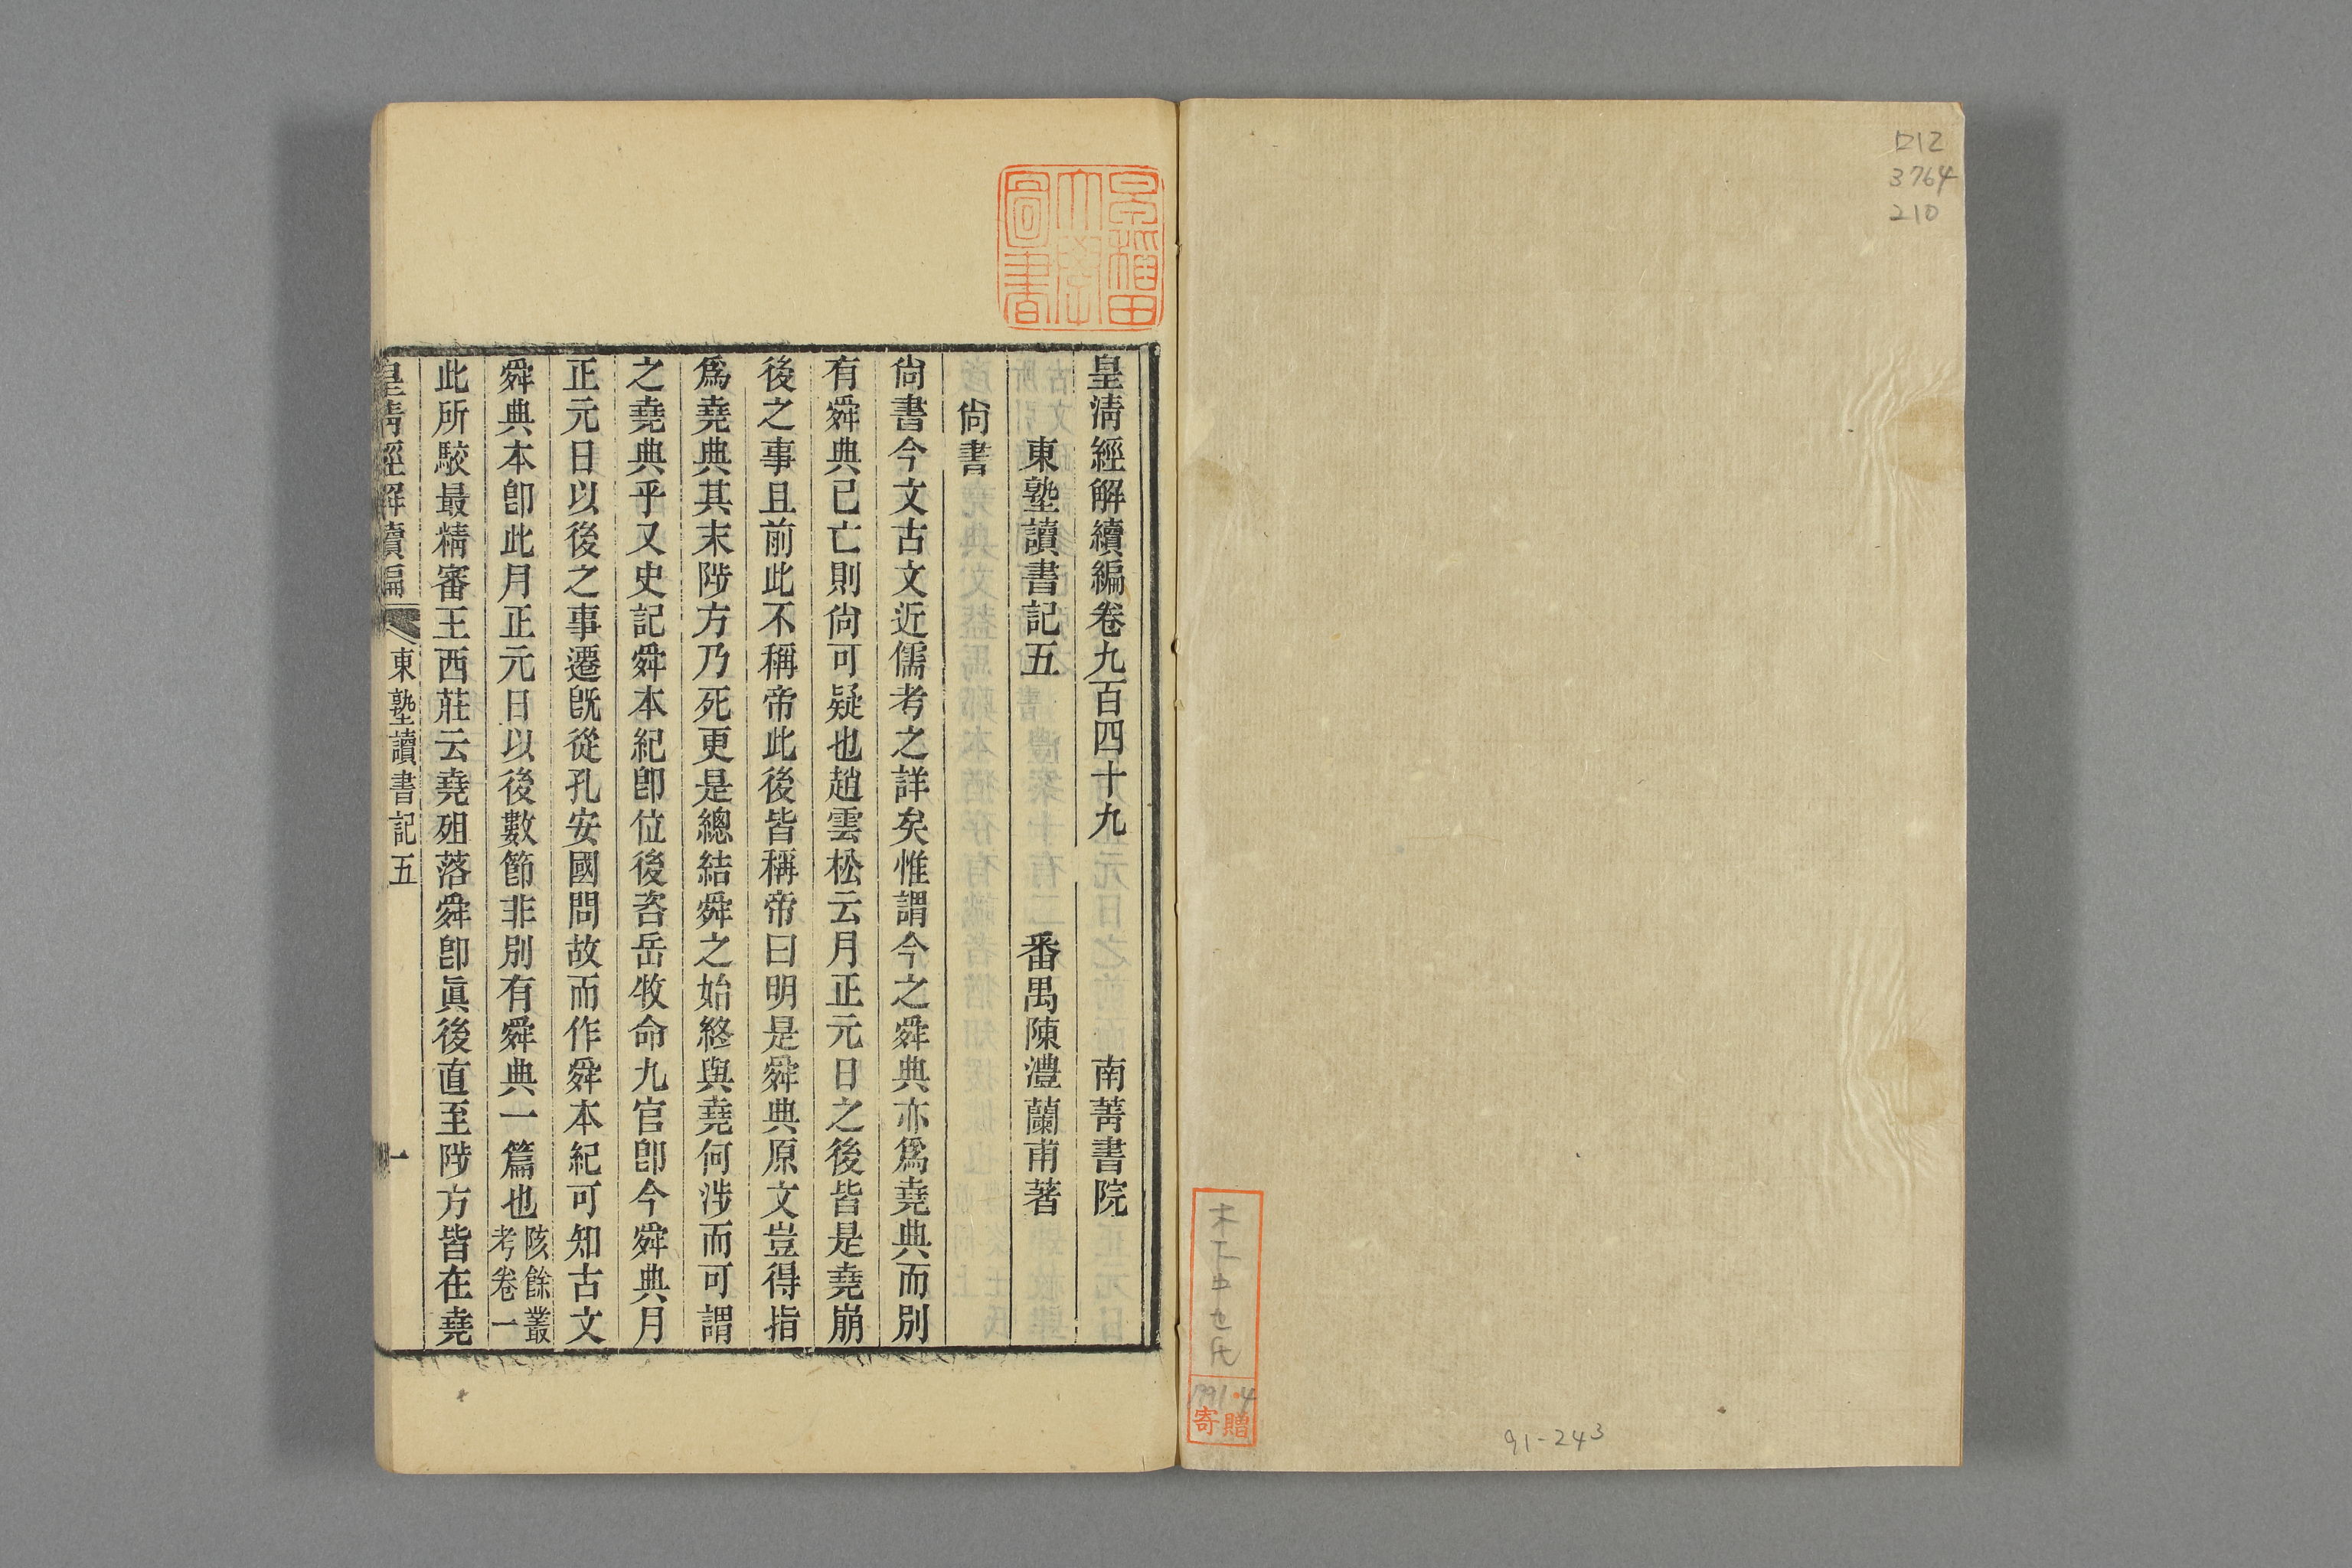 ロ12
3764
210
木下中也氏
1991.4
寄贈
91-243
早稲田
大學
圖書
皇清經解續編卷九百四十九　南菁書院
東塾讀書記五　番禺陳澧蘭甫著
尙書
尙書今文古文近儒考之詳矣惟謂今之舜典亦爲堯典而別
有舜典已亡則尙可疑也趙雲松云月正元日之後皆是堯崩
後之事且前此不稱帝此後皆稱帝曰明是舜典原文豈得指
爲堯典其末陟方乃死更是總結舜之始終與堯何涉而可謂
之堯典乎又史記舜本紀卽位後咨岳牧命九官卽今舜典月
正元日以後之事遷旣從孔安國問故而作舜本紀可知古文
舜典本卽此月正元日以後數節非別有舜典一篇也陔餘叢
考卷一
此所駮最精審王西莊云堯殂落舜卽眞後直至陟方皆在堯
皇清經解續編　東塾讀書記五　一